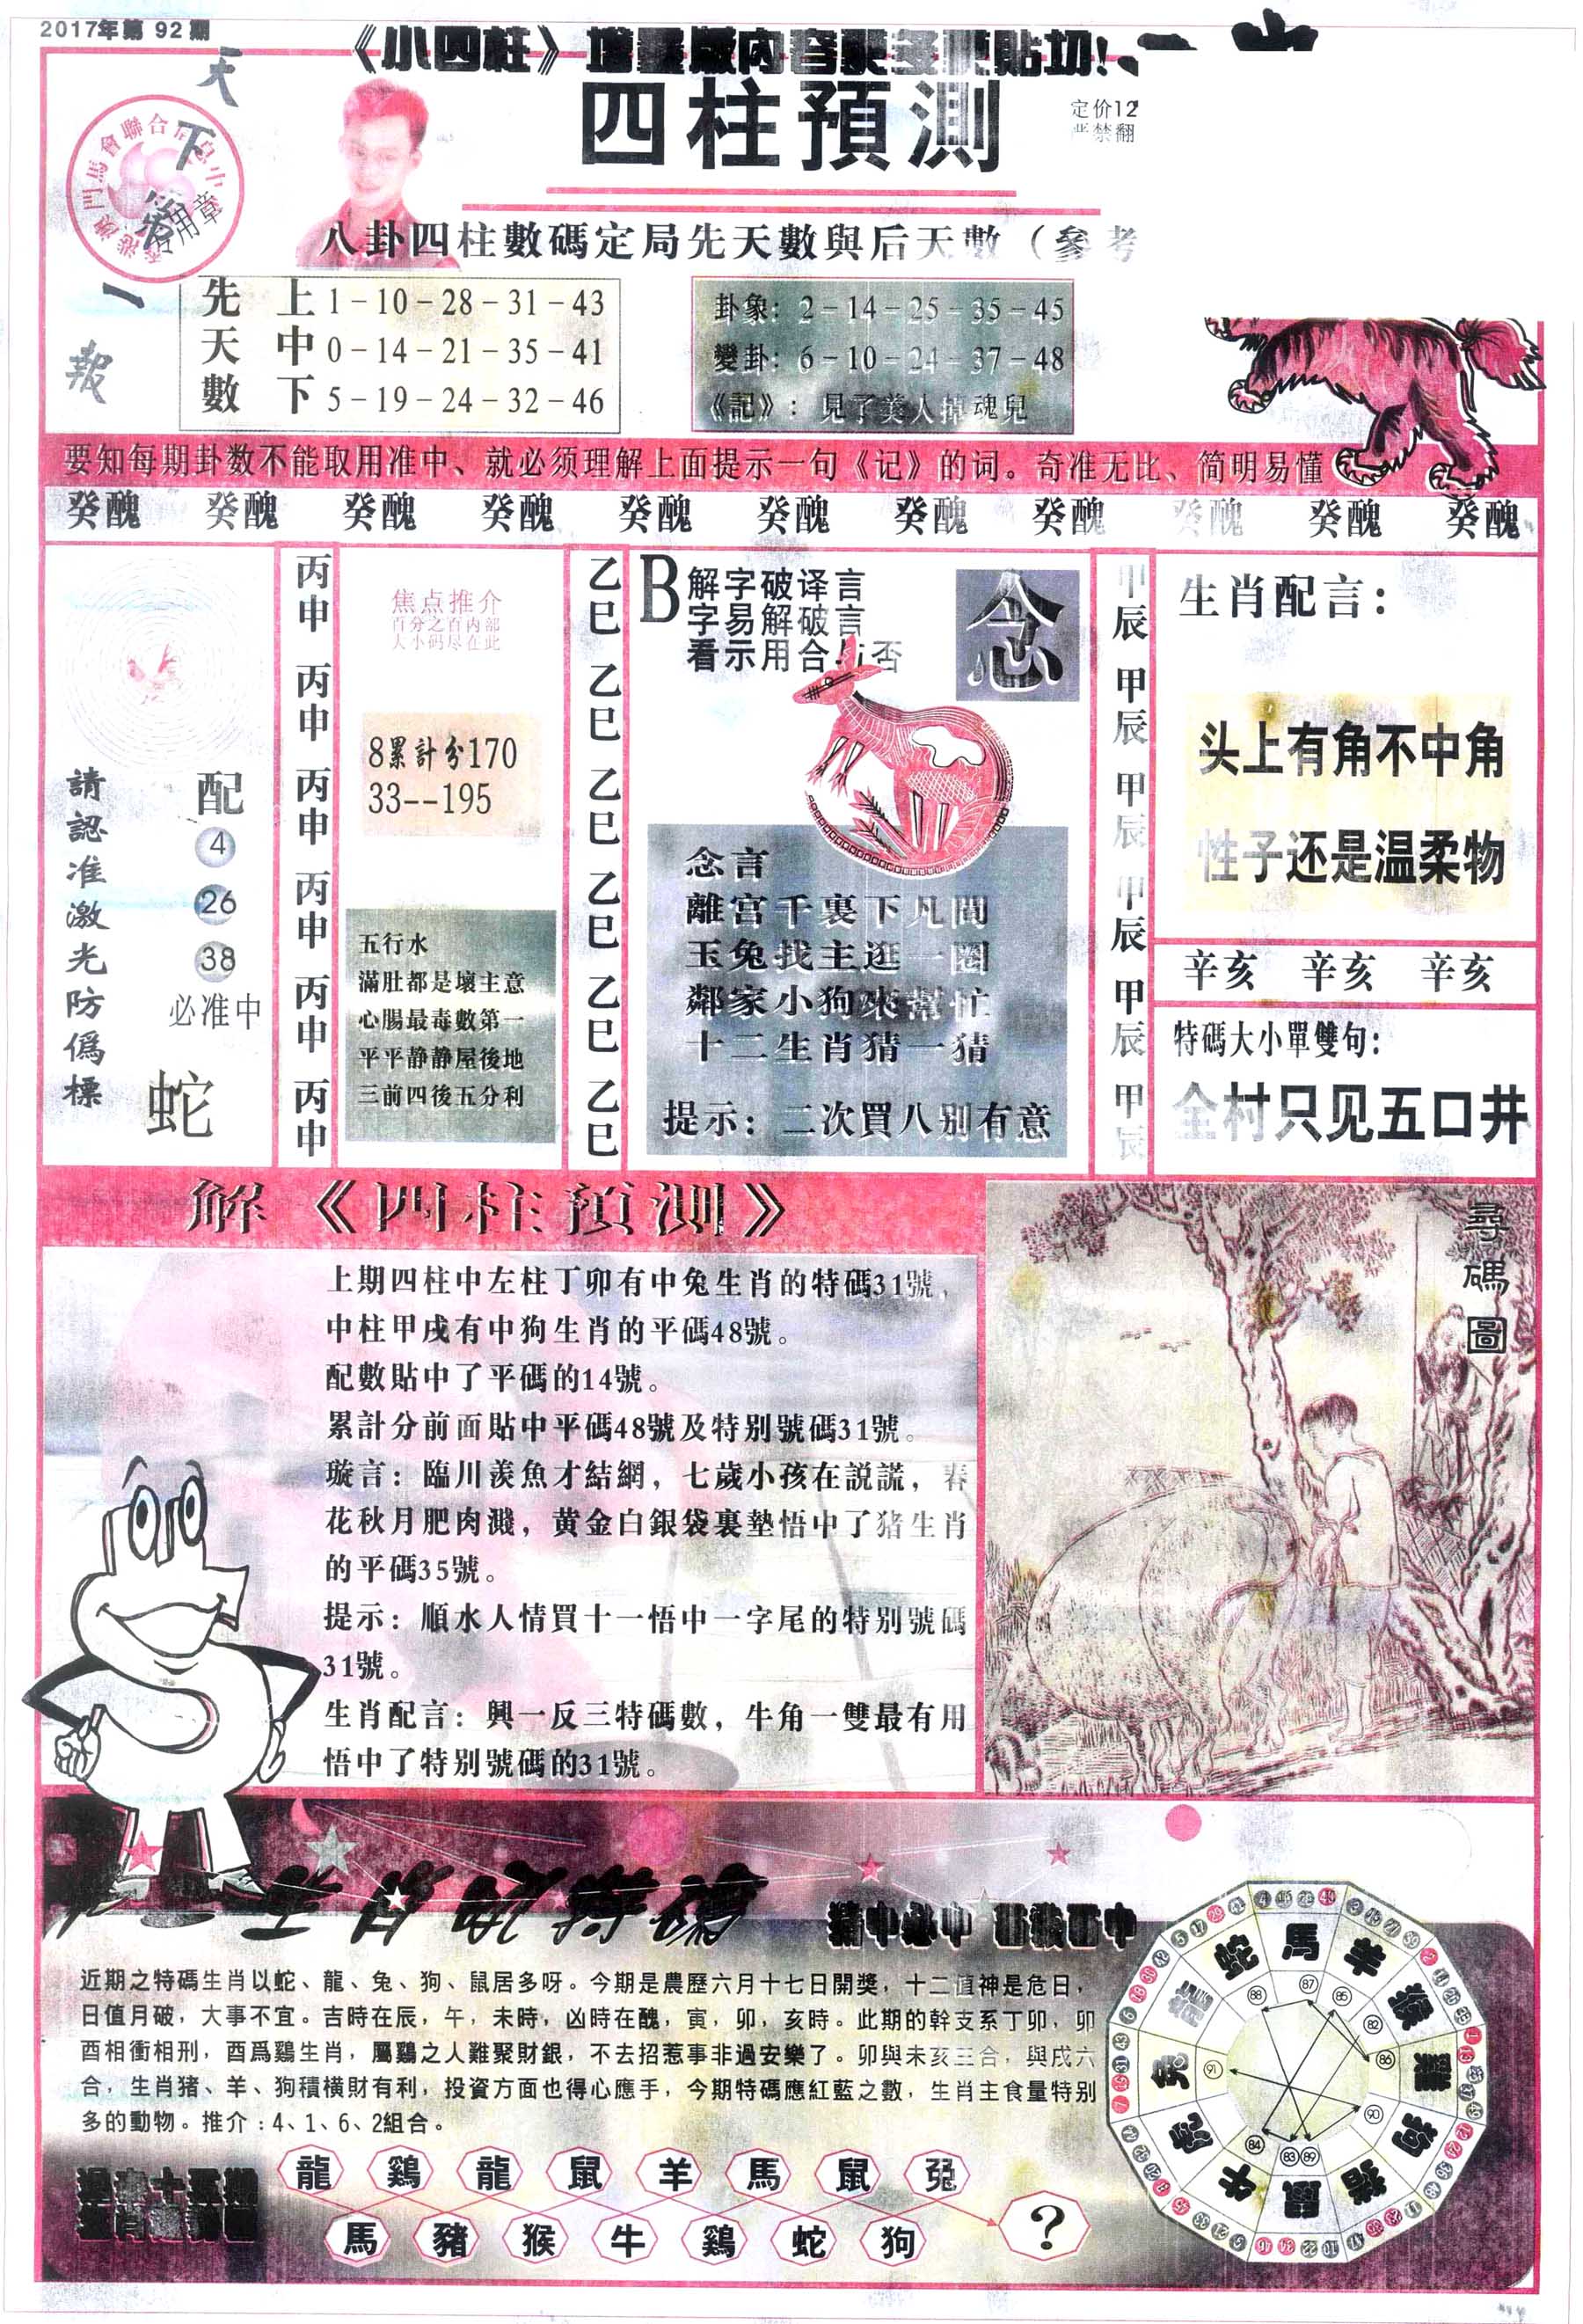 2017年第 92 期
天
下
第
一
報
四柱預測
定价12
严禁翻
專用章
八卦四柱數碼定局先天數與后天數（參考
先 上 1－10－28－31－43
天 中 0－14－21－35－41
數 下 5－19－24－32－46
卦象：2－14－25－35－45
變卦：6－10－24－37－48
《記》：見了美人掉魂兒
要知每期卦数不能取用准中、就必须理解上面提示一句《记》的词。奇准无比、简明易懂
癸醜 癸醜 癸醜 癸醜 癸醜 癸醜 癸醜 癸醜 癸醜 癸醜 癸醜
請認准激光防僞標
配
4
26
38
必准中
蛇
丙申 丙申 丙申 丙申 丙申 丙申
焦点推介
百分之百内部
大小码尽在此
8累計分170
33--195
五行水
滿肚都是壞主意
心腸最毒數第一
平平静静屋後地
三前四後五分利
乙巳 乙巳 乙巳 乙巳 乙巳 乙巳
B
解字破译言
字易解破言
看示用合与否
念
念言
離宫千裏下凡間
玉兔找主逛一圈
鄰家小狗來幫忙
十二生肖猜一猜
提示：二次買八别有意
甲辰 甲辰 甲辰 甲辰 甲辰 甲辰
生肖配言：
头上有角不中角
性子还是温柔物
辛亥 辛亥 辛亥
特碼大小單雙句：
全村只见五口井
解《四柱預測》
上期四柱中左柱丁卯有中兔生肖的特碼31號，
中柱甲戌有中狗生肖的平碼48號。
配數貼中了平碼的14號。
累計分前面貼中平碼48號及特别號碼31號。
璇言：臨川羡魚才結網，七歲小孩在説謊，春
花秋月肥肉濺，黄金白銀袋裏墊悟中了猪生肖
的平碼35號。
提示：順水人情買十一悟中一字尾的特别號碼
31號。
生肖配言：興一反三特碼數，牛角一雙最有用
悟中了特别號碼的31號。
尋碼圖
近期之特碼生肖以蛇、龍、兔、狗、鼠居多呀。今期是農歷六月十七日開獎，十二值神是危日，
日值月破，大事不宜。吉時在辰，午，未時，凶時在醜，寅，卯，亥時。此期的幹支系丁卯，卯
酉相衝相刑，酉爲鷄生肖，屬鷄之人難聚財銀，不去招惹事非過安樂了。卯與未亥三合，與戌六
合，生肖猪、羊、狗積横財有利，投資方面也得心應手，今期特碼應紅藍之數，生肖主食量特别
多的動物。推介：4、1、6、2組合。
龍 鷄 龍 鼠 羊 馬 鼠 兔
馬 豬 猴 牛 鷄 蛇 狗 ？
馬 羊 猴 鷄 狗 豬 鼠 牛 虎 兔 龍 蛇
87 85 82 86 90 89 83 84 91 88